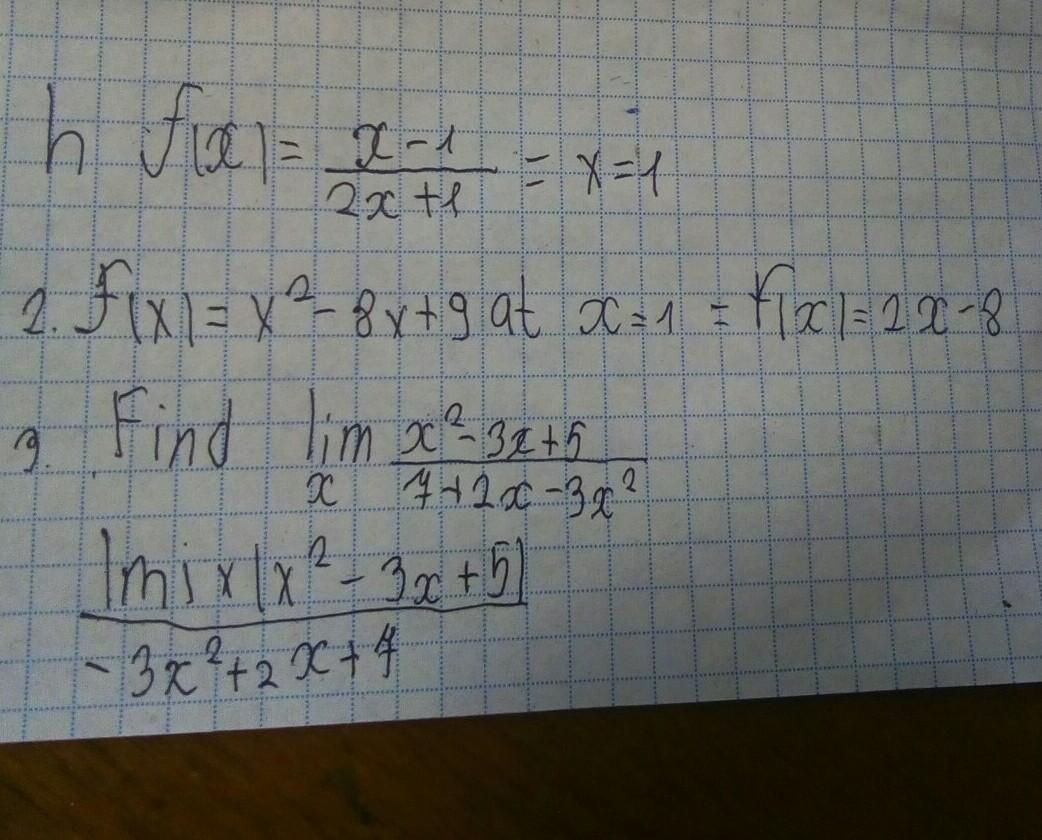 h f(x) = x-1 / 2x+1 = x=1
2. f(x) = x² - 8x + 9 at x=1 = f(x) = 2x - 8
3. Find lim x x² - 3x + 5 / 7 + 2x - 3x²
lmisx(x² - 3x + 5) / -3x² + 2x + 7